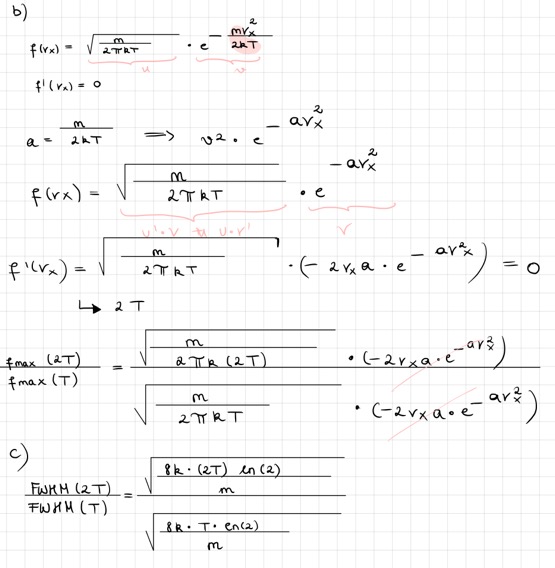 b)
f(vx) = √(m / 2πkT) · e^(− mvx² / 2kT)
u v
f'(vx) = 0
a = m / 2kT ⟹ v² · e^(− avx²)
f(vx) = √(m / 2πkT) · e^(− avx²)
u'·v + u·v' v
f'(vx) = √(m / 2πkT) · (− 2vx a · e^(− avx²)) = 0
↳ 2T
fmax (2T) / fmax (T) = √(m / 2πk (2T)) · (−2vx a · e^(−avx²)) / √(m / 2πkT) · (−2vx a · e^(− avx²))
c)
FWHM (2T) / FWHM (T) = √(8k · (2T) ln(2) / m) / √(8k · T · ln(2) / m)